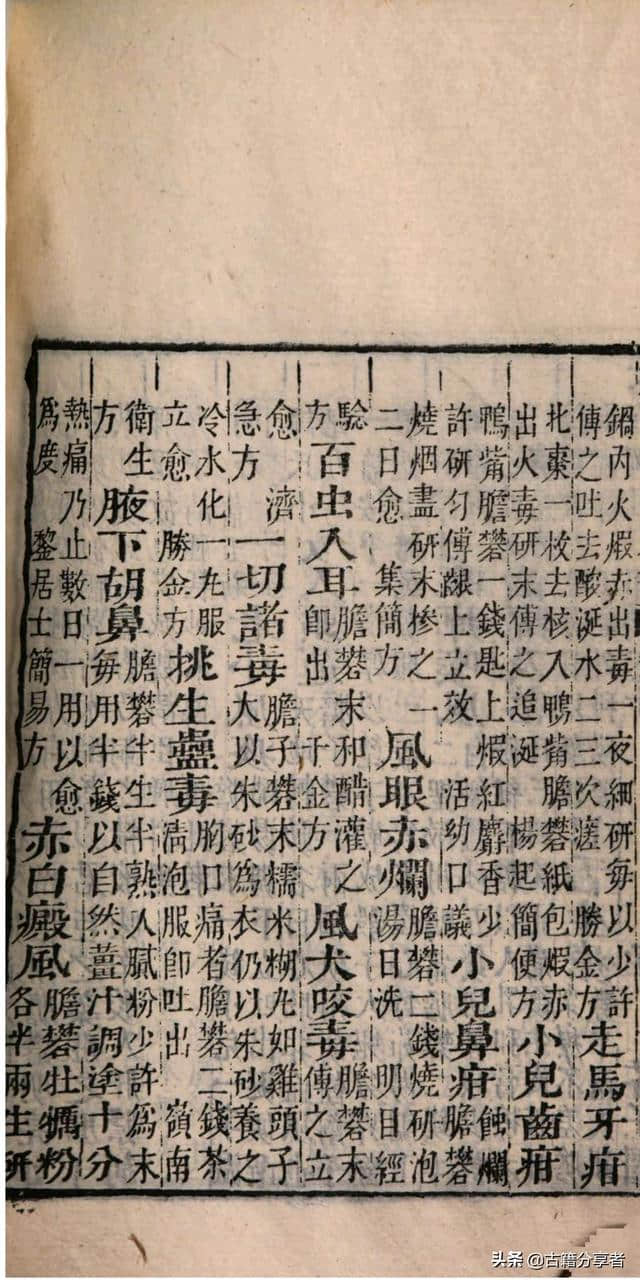 鍋內火煅赤出毒一夜細研每以少許
傅之吐去酸涎水二三次瘥 勝金方 走馬牙疳
北棗一枚去核入鴨觜膽礬紙包煅赤
出火毒研末傅之追涎 楊起簡便方 小兒齒疳
鴨觜膽礬一錢匙上煅紅麝香少
許研勻傅齦上立效 活幼口議 小兒鼻疳 蝕爛
膽礬
燒烟盡研末摻之一
二日愈 集簡方 風眼赤爛 膽礬二錢燒研泡
湯日洗 明目經
驗
方 百虫入耳 膽礬末和醋灌之
即出 千金方 風犬咬毒 膽礬末
傅之立
愈 濟
急方 一切諸毒 膽子礬末糯米糊丸如雞頭子
大以朱砂爲衣仍以朱砂養之
冷水化一丸服
立愈 勝金方 挑生蠱毒 胸口痛者膽礬二錢茶
清泡服即吐出 嶺南
衛生
方 腋下胡鼻 膽礬半生半熟入膩粉少許爲末
每用半錢以自然薑汁調塗十分
熱痛乃止數日一用以愈
爲度 黎居士簡易方 赤白癜風 膽礬牡蠣粉
各半兩生研
头条 @古籍分享者